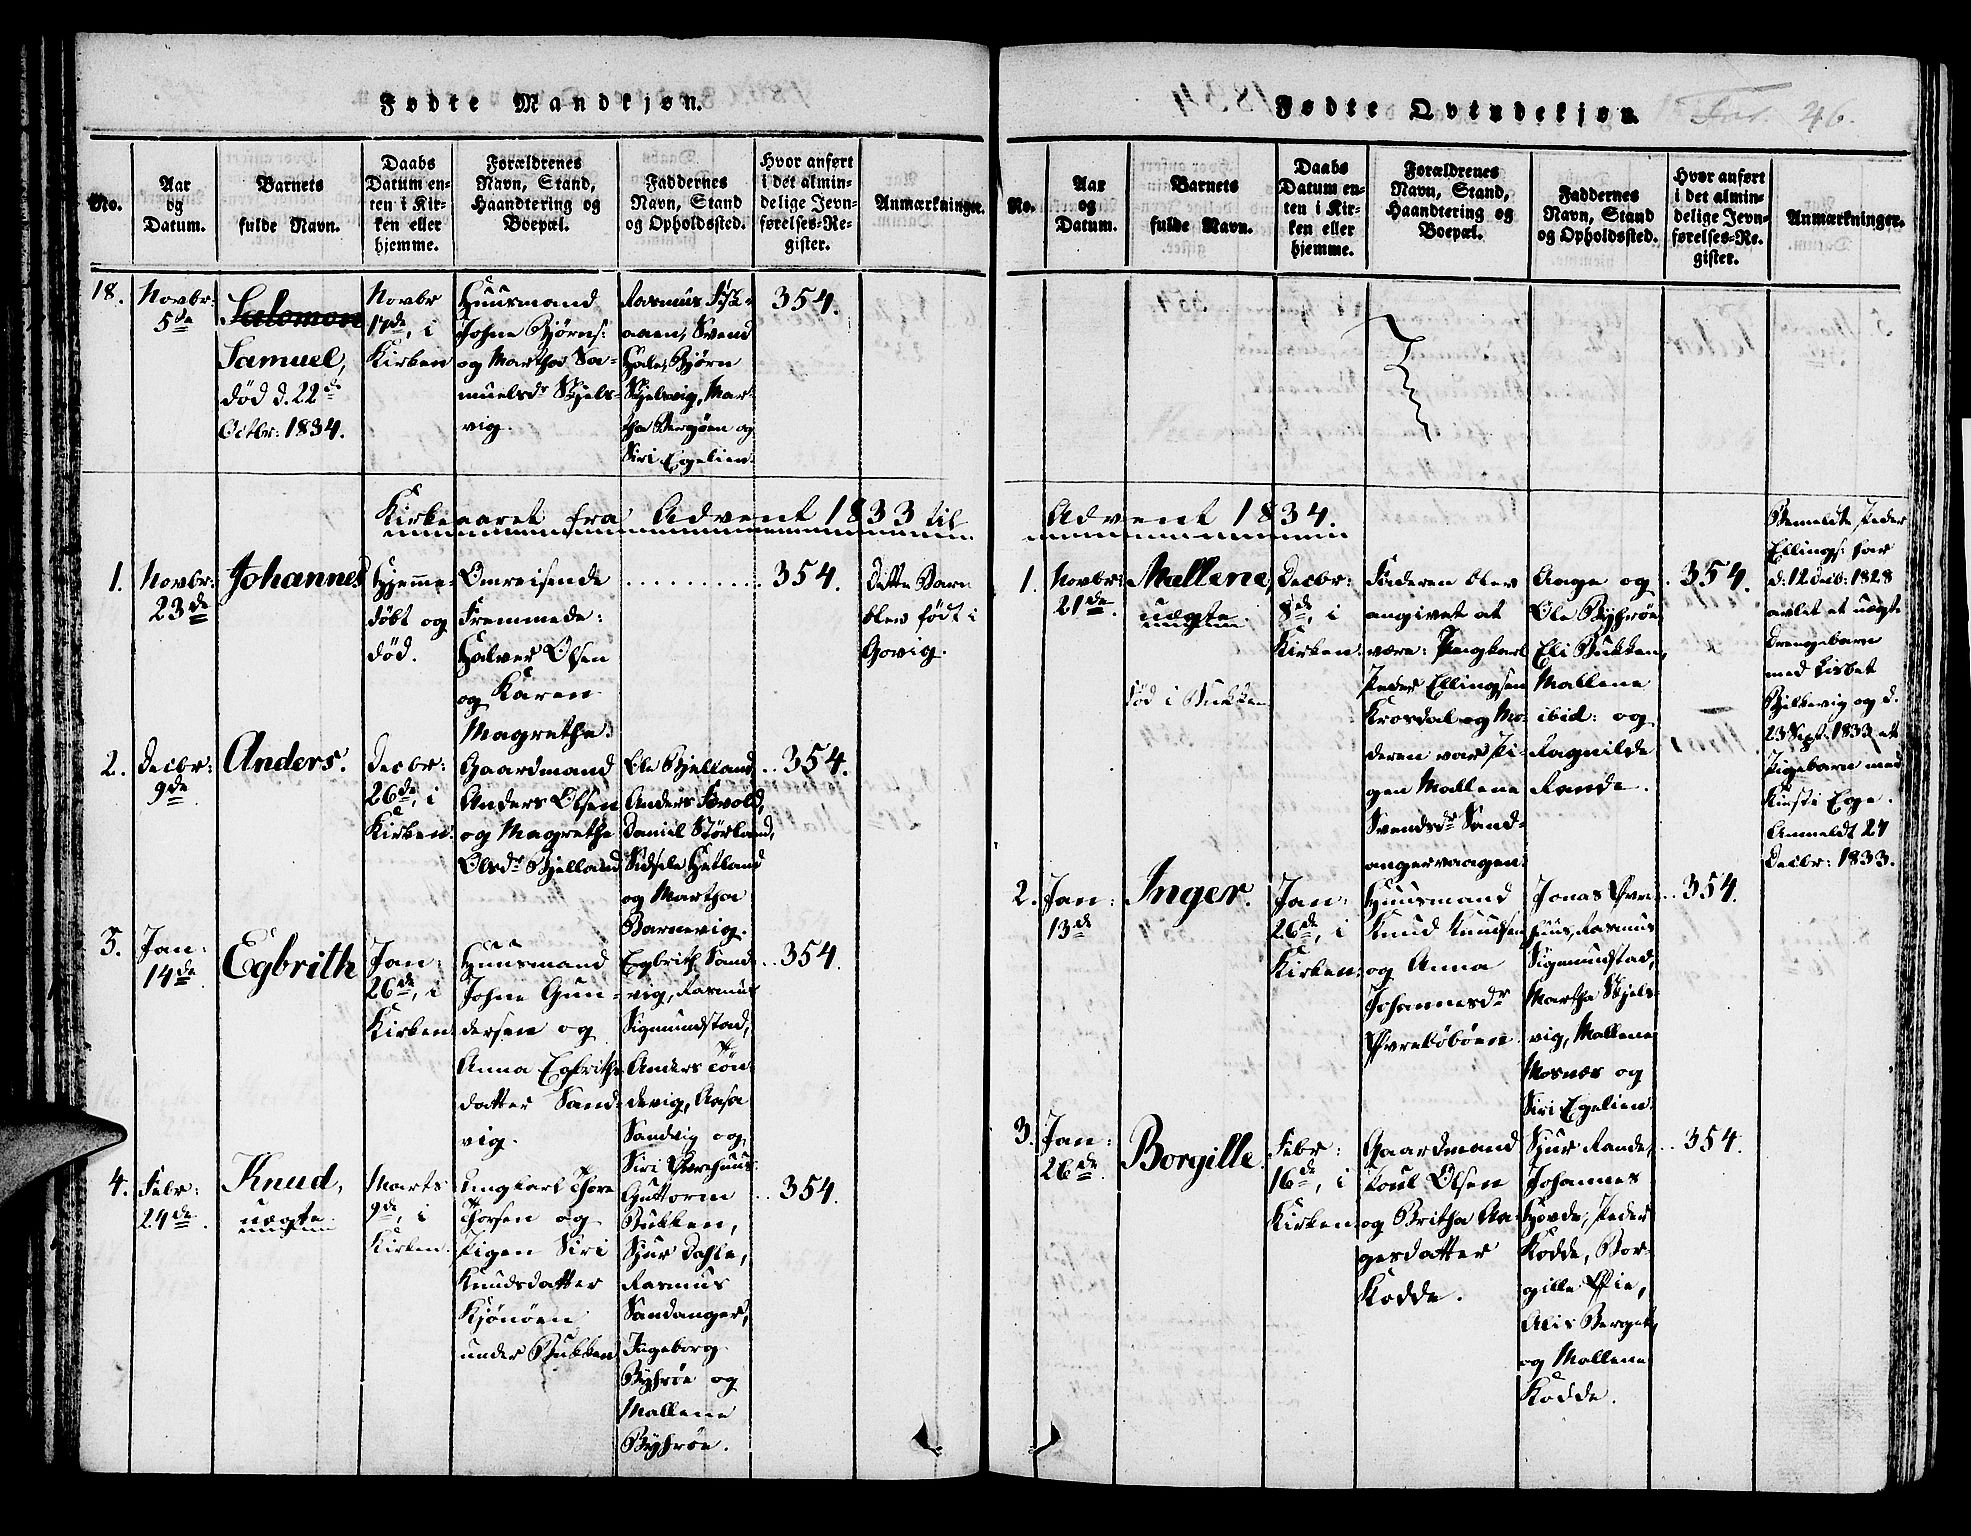 Fødte Mandkjøn.
No.
Aar
og
Datum.
Barnets
fulde Navn.
Daabs
Datum en-
ten i Kir-
ken eller
hjemme.
Forældrenes
Navn, Stand,
Haandtering og
Boepæl.
Faddernes
Navn, Stand
og Opholdssted.
Hvor anført
i det almin-
delige Jevn-
førelses-Re-
gister.
Anmærkninger.
18.
Novbr:
5de
Salomon
Samuel,
død d. 22de
Octbr: 1834.
Novbr
17de, i
Kirken
Huusmand
Johne Bjørns:
og Martha Sa-
muelsdr Skjels-
vig.
Rasmus Fisk-
aaen, Svend
Hale, Bjørn
Skjelsvig, Mar-
tha Bergøen og
Siri Egelien.
354.
Kirkeaaret fra Advent 1833 til
1.
Novbr:
23de
Johannes
Hjemme-
døbt og
død.
Omreisende
Fremmede:
Halver Olsen
og Karen
Magrethe.
354.
Dette Barn
blev født i
Govig.
2.
Decbr:
9de
Anders.
Decbr:
26de, i
Kirken.
Gaardmand
Anders Olsen
og Magrethe
Olsdr Bjelland
Ole Bjelland
Anders Hovold,
Daniel Størland,
Sidsele Hetland
og Martha
Barnevig.
354.
3.
Jan:
14de
Egbrith
Jan:
26de, i
Kirken
Huusmand
Johne Gun-
dersen og
Anna Egbriths
datter Sand-
vig.
Egbrith Sand-
vig, Rasmus
Sigmundstad,
Anders Tøn-
devig, Aasa
Sandvig og
Siri Østrehuus.
354.
4.
Febr:
24de
Knud,
uægte
Marts
9de, i
Kirken.
Ungkarl Thore
Thorsen og
Pigen Siri
Knudsdatter
Kjønøen
under Bukken
Guttorm
Bukken,
Sjur Dahle,
Rasmus
Sandanger,
Ingeborg
Byhrøe og
Mallene
Byhrøe.
354.
Fødte Qvindekjøn.
46.
No.
Aar
og
Datum.
Barnets
fulde Navn.
Daabs
Datum en-
ten i Kir-
ken eller
hjemme.
Forældrenes
Navn, Stand,
Haandtering og
Boepæl.
Faddernes
Navn, Stand
og Opholdssted.
Hvor anført
i det almin-
delige Jevn-
førelses-Re-
gister.
Anmærkninger.
Advent 1834.
1.
Novbr:
21de
Mallene,
uægte.
død i Bukken
Decbr:
8de, i
Kirken.
Faderen blev
angivet at
være: Ungkarl
Peder Ellingsen
Krosdal og Mo-
deren var Pi-
gen Mallene
Svendsdr Sand-
angervaagen.
Aage og
Ole Byhrøe
Eli Bukken,
Mallene
ibid: og
Ragnilde
Rande.
354.
Bemeldte Peder
Ellings: har
d: 12 Decb: 1828
avlet et uægte
Drengebarn
med Lisbet
Bjelkevig og d.
23 Sept: 1833 et
Pigebarn med
Kirsti Ege.
Anmeldt 27
Decbr: 1833.
2.
Jan:
13de
Inger.
Jan:
26de, i
Kirken.
Huusmand
Knud Knudsen
og Anna
Johannesdr
Øvrebøbøen.
Jonas Øvre-
huus, Rasmus
Sigmundstad,
Martha Skjels-
vig, Mallene
Mosnes og
Siri Egelien.
354.
3.
Jan:
26de
Borgille.
Febr:
16de, i
Kirken
Gaardmand
Poul Olsen
og Britha Aa-
gesdatter
Kodde.
Sjur Rande,
Johannes
Hovde, Peder
Kodde, Bor-
gille Øie,
Alis Berget,
og Mallene
Kodde.
354.